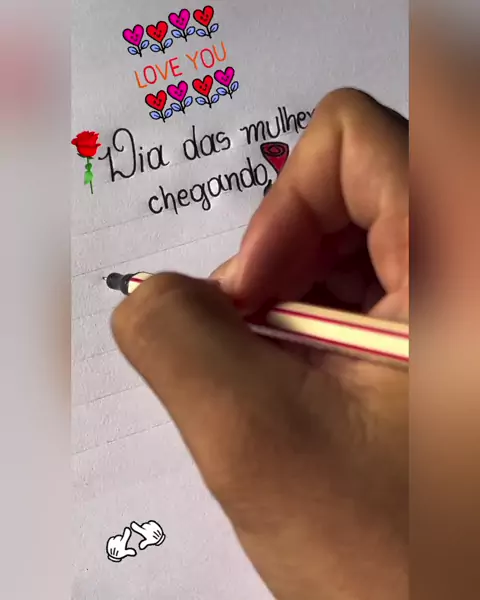 LOVE YOU
Dia das mulher
chegando